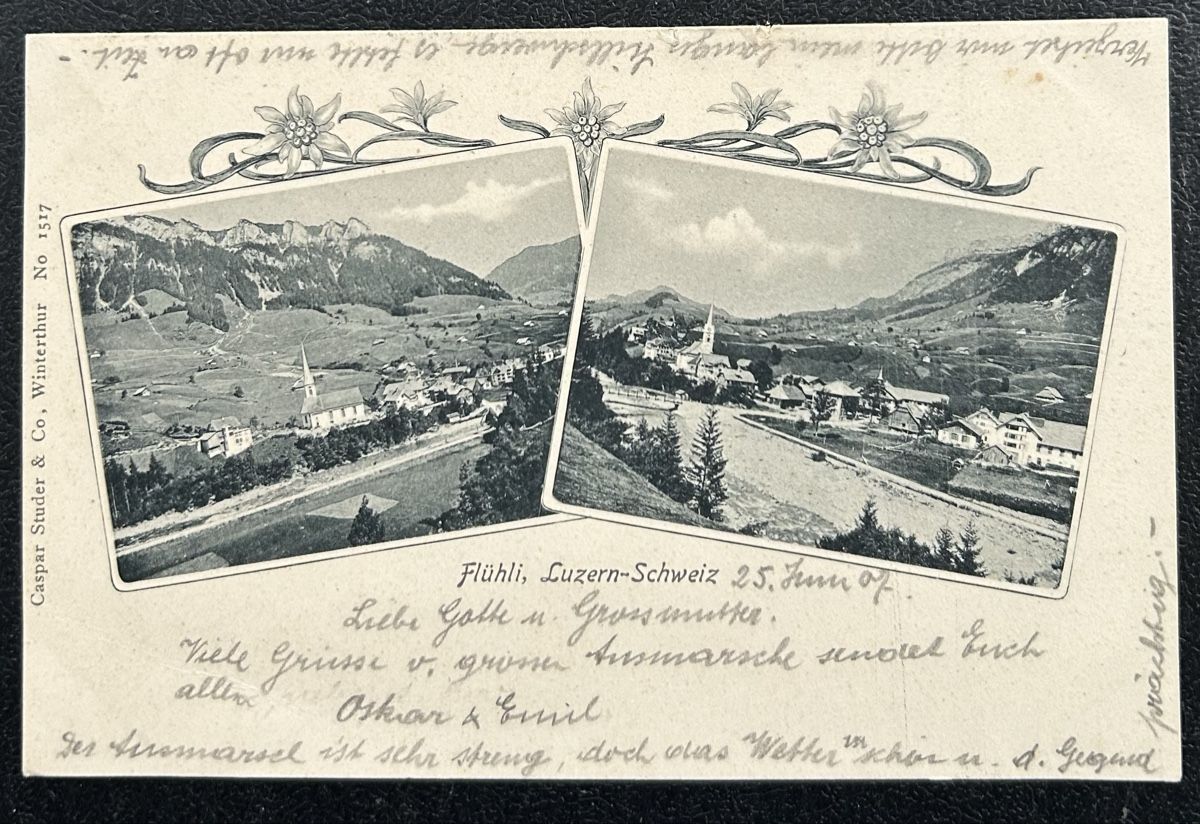 Caspar Studer & Co., Winterthur No 1517
Flühli, Luzern-Schweiz 25. Juni 07.
Liebe Gotte u. Grossmutter.
Viele Grüsse v. grossen Ausmarsche sendet Euch
allen
Oskar & Emil
Der Ausmarsch ist sehr streng, doch das Wetter ist schön u. d. Gegend
prächtig.-
Verzeihet mir bitte mein langes Stillschweigen, es fehlte mir oft an Zeit.-